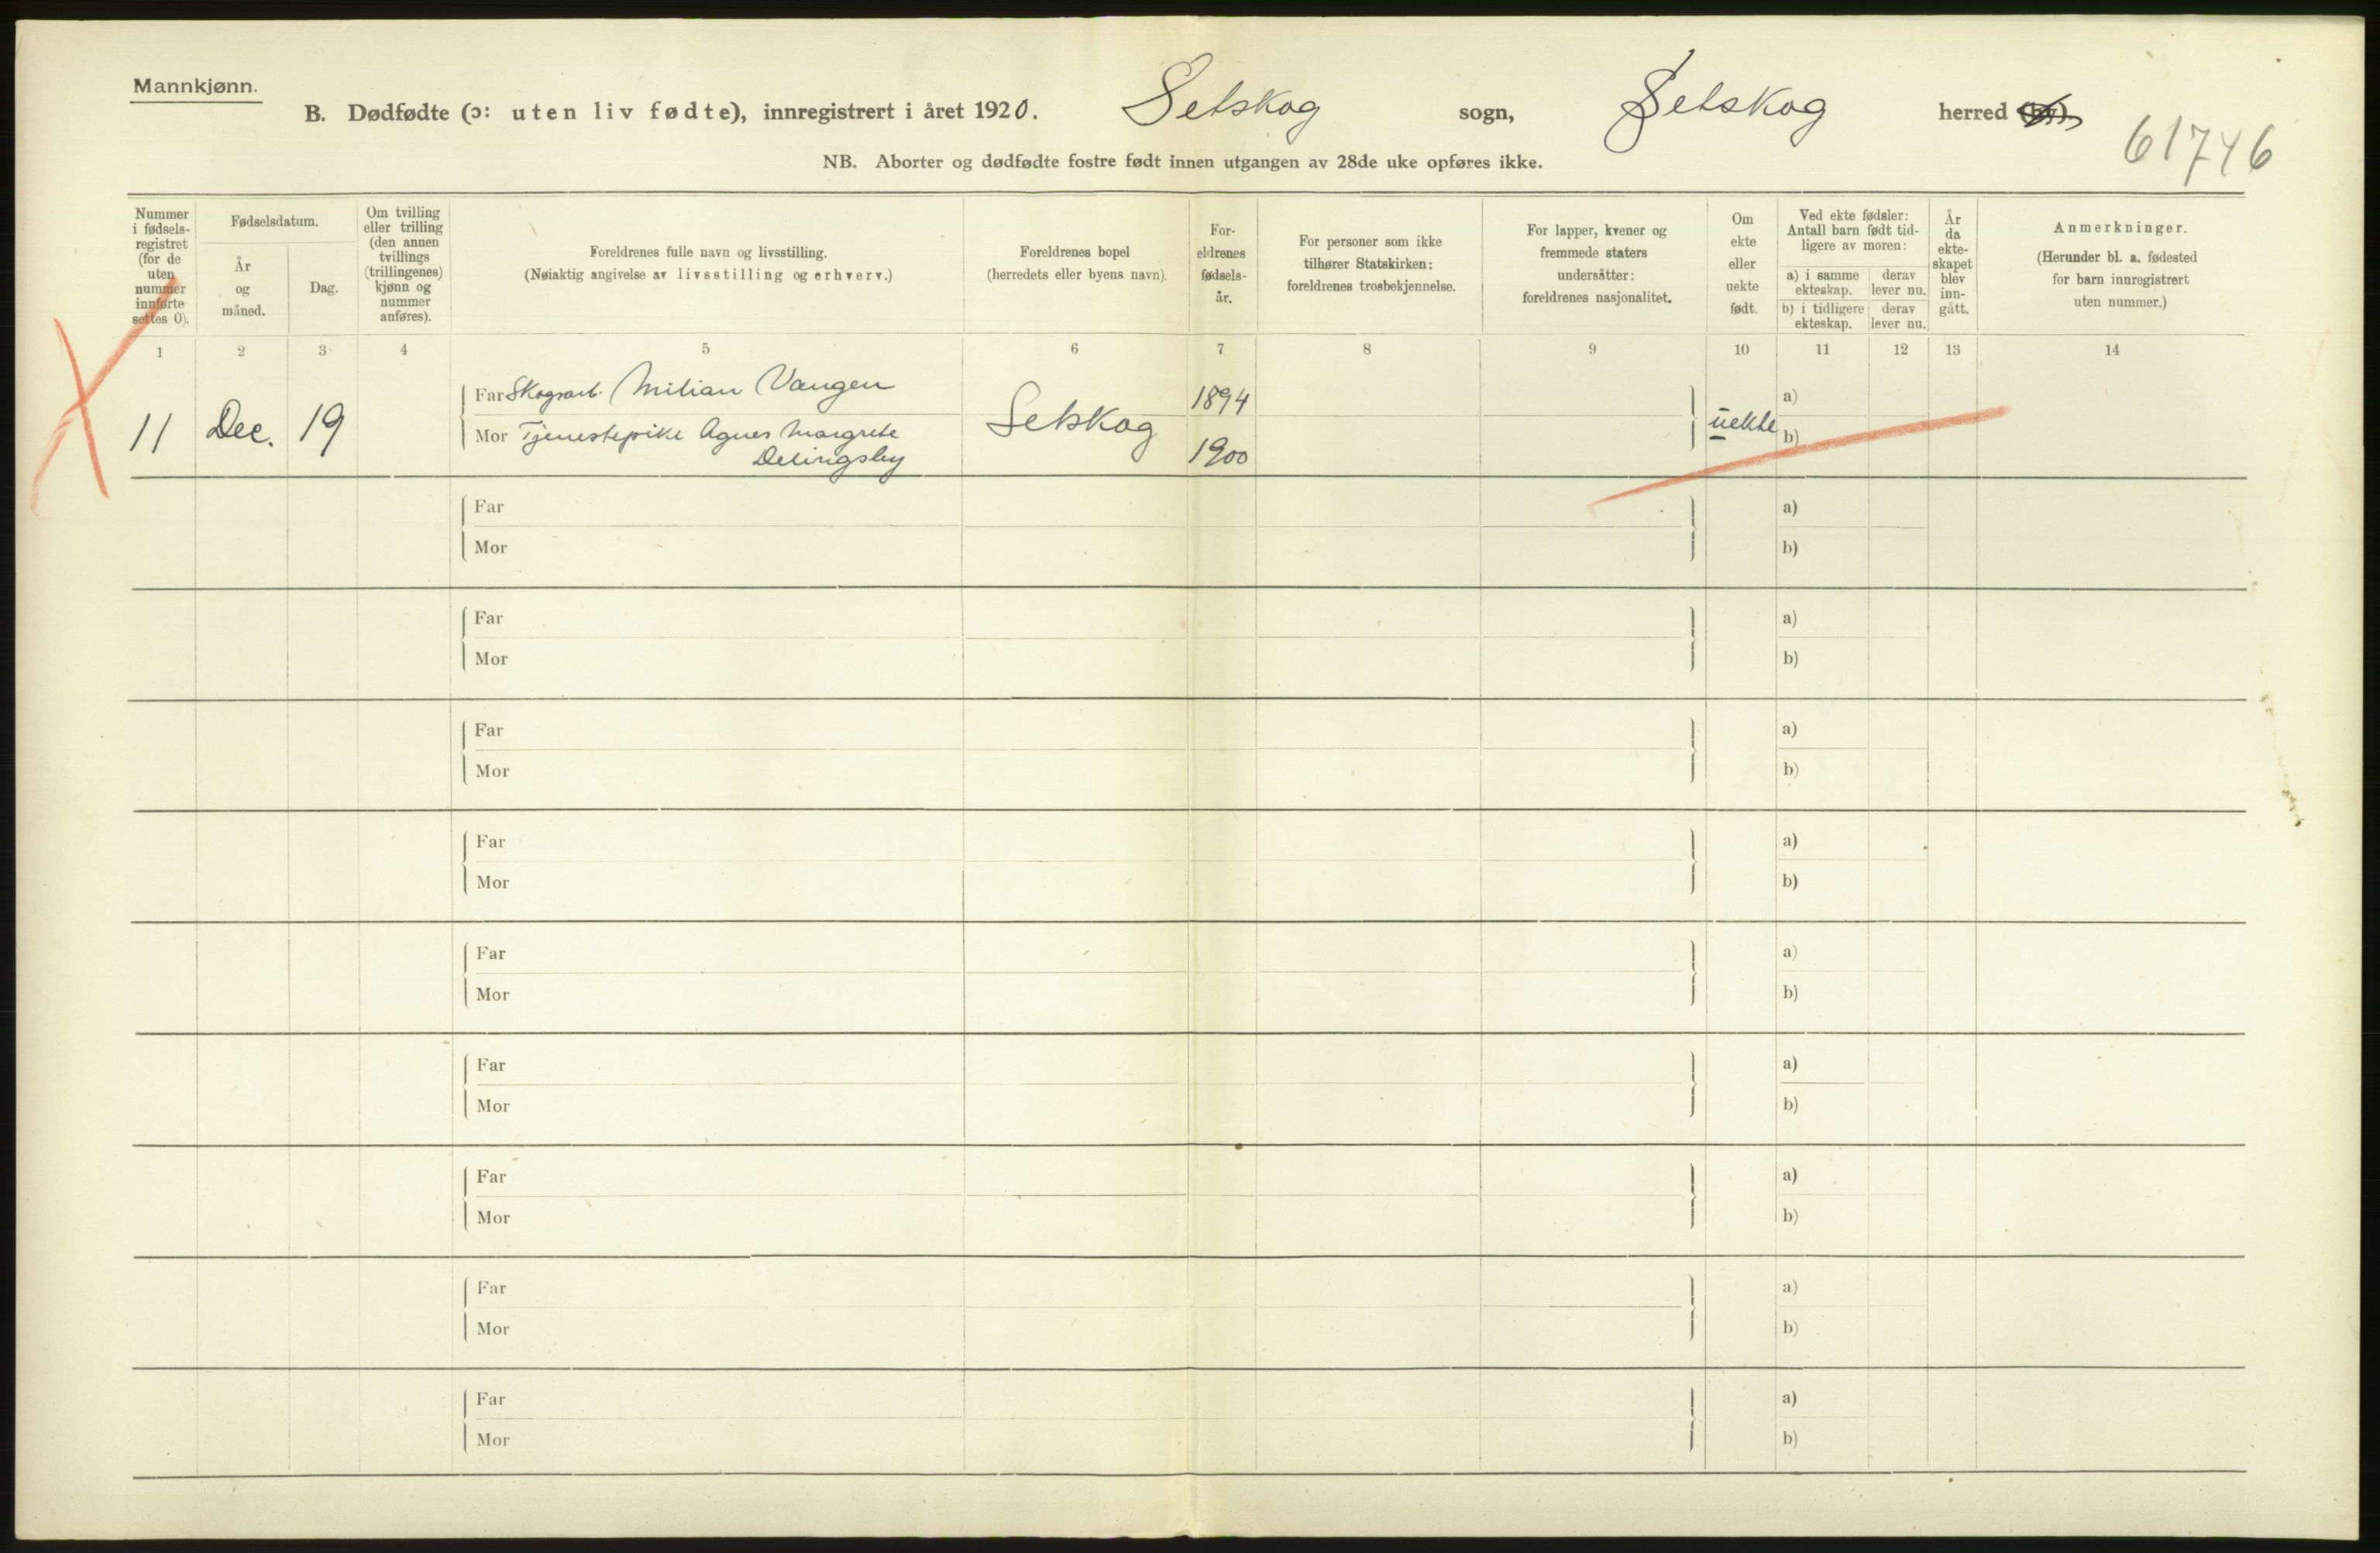 Mannkjønn.
B. Dødfødte (ɔ: uten liv fødte), innregistrert i året 1920. Setskog sogn, Setskog herred (by).
61746
NB. Aborter og dødfødte fostre født innen utgangen av 28de uke opføres ikke.
Nummer
i fødsels-
registret
(for de
uten
nummer
innførte
settes 0).
Fødselsdatum.
År
og
måned.
Dag.
Om tvilling
eller trilling
(den annen
tvillings
(trillingenes)
kjønn og
nummer
anføres).
Foreldrenes fulle navn og livsstilling.
(Nøiaktig angivelse av livsstilling og erhverv.)
Foreldrenes bopel
(herredets eller byens navn).
For-
eldrenes
fødsels-
år.
For personer som ikke
tilhører Statskirken:
foreldrenes trosbekjennelse.
For lapper, kvener og
fremmede staters
undersåtter:
foreldrenes nasjonalitet.
Om
ekte
eller
uekte
født.
Ved ekte fødsler:
Antall barn født tid-
ligere av moren:
a) i samme
ekteskap.
derav
lever nu.
b) i tidligere
ekteskap.
derav
lever nu.
År
da
ekte-
skapet
blev
inn-
gått.
Anmerkninger.
(Herunder bl. a. fødested
for barn innregistrert
uten nummer.)
1 2 3 4 5 6 7 8 9 10 11 12 13 14
Far Skogsarb. Milian Vangen 1894 a)
11 Dec. 19 Mor Tjenestepike Agnes Margrete Setskog 1900 uekte b)
Delingsby
Far a)
Mor b)
Far a)
Mor b)
Far a)
Mor b)
Far a)
Mor b)
Far a)
Mor b)
Far a)
Mor b)
Far a)
Mor b)
Far a)
Mor b)
Far a)
Mor b)